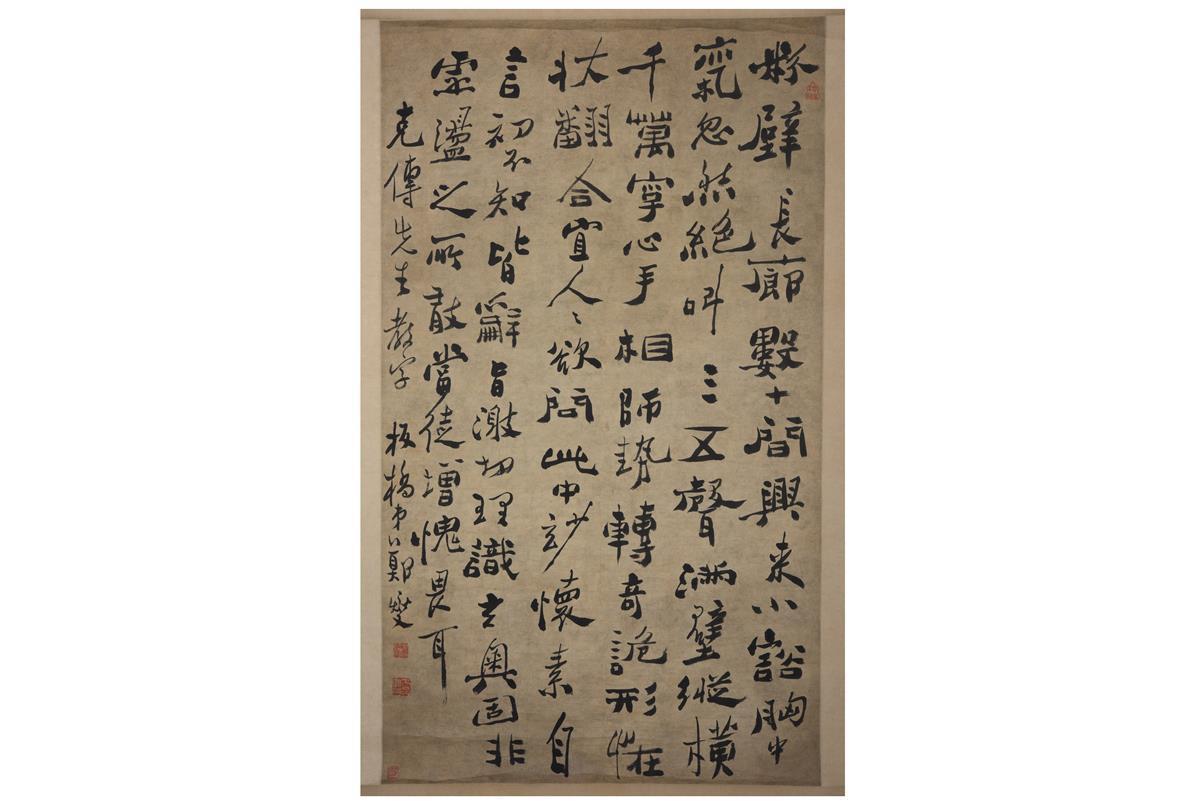 粉壁長廊數十間興來小豁胸中
氣忽然絕叫三五聲滿壁縱橫
千萬字心手相師勢轉奇詭形恠
狀翻合宜人〻欲問此中妙懷素自
言初不知皆辭旨激切理識玄奧固非
虛蕩之所敢當徒增愧畏耳
克傳先生教字 板橋弟鄭燮